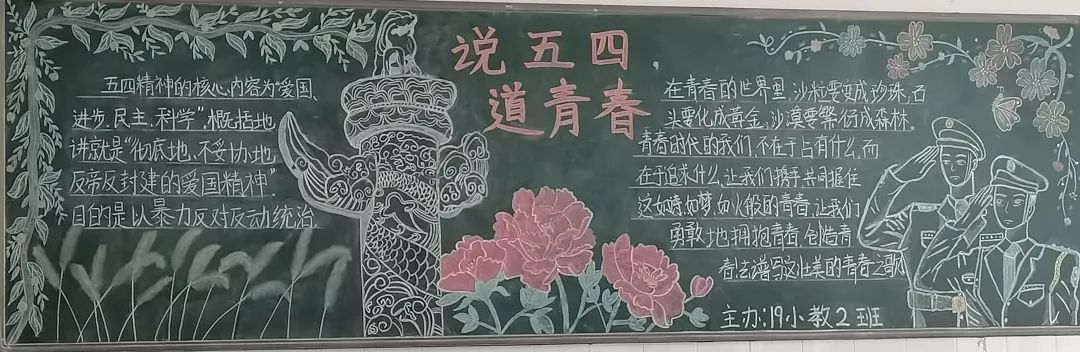 说五四，
道青春
五四精神的核心内容为爱国、
进步、民主、科学”,概括地
讲就是“彻底地、不妥协地
反帝反封建的爱国精神”
目的是以暴力反对反动统治.
在青春的世界里,沙粒要变成珍珠,石
头要化成黄金,沙漠要繁衍成森林.
青春时代的我们,不在于占有什么,而
在于追求什么,让我们携手共同握住
这如诗如梦,如火般的青春,让我们
勇敢地拥抱青春,创造青
春去谱写这壮美的青春之歌
主办:19小教2班